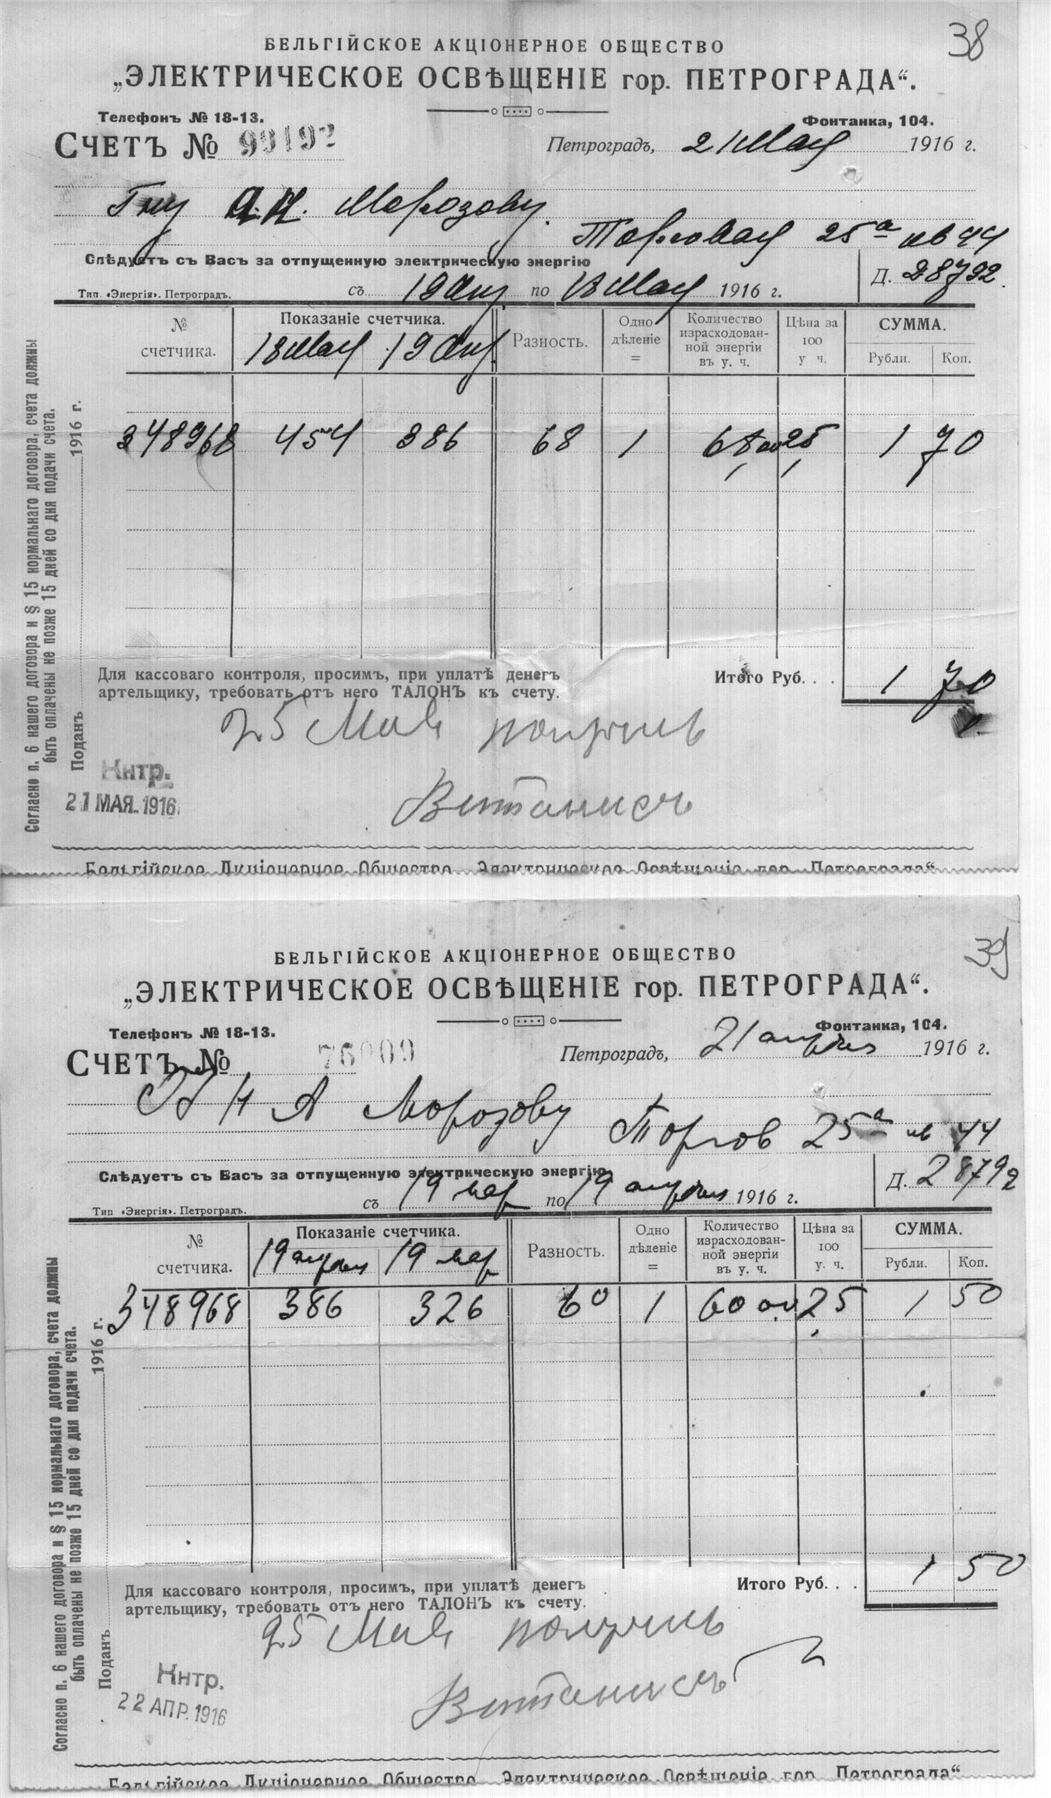 38
БЕЛЬГІЙСКОЕ АКЦІОНЕРНОЕ ОБЩЕСТВО
„ЭЛЕКТРИЧЕСКОЕ ОСВѢЩЕНІЕ гор. ПЕТРОГРАДА“.
Телефонъ № 18-13. Фонтанка, 104.
СЧЕТЪ № 99192 Петроградъ, 21 Мая 1916 г.
Гну А. Н. Морозову.
Торговая 25а кв 44
Слѣдуетъ съ Васъ за отпущенную электрическую энергію
Тип. «Энергія». Петроградъ. съ 19 Апр по 18 Мая 1916 г. Д. 28792.
№ счетчика. Показаніе счетчика. Разность. Одно дѣленіе = Количество израсходованной энергіи въ у. ч. Цѣна за 100 у. ч. СУММА.
18 Мая 19 Апр. Рубли. Коп.
348968 454 386 68 1 68,00 25, 1 70
Для кассоваго контроля, просимъ, при уплатѣ денегъ Итого Руб. . . 1 70
артельщику, требовать отъ него ТАЛОНЪ къ счету.
25 Мая получилъ
Витанисъ
Кнтр.
21 МАЯ. 1916.
Согласно п. 6 нашего договора и § 15 нормальнаго договора, счета должны
быть оплачены не позже 15 дней со дня подачи счета.
Поданъ 1916 г.
Бельгійское Акціонерное Общество „Электрическое Освѣщеніе гор. Петрограда“
39
БЕЛЬГІЙСКОЕ АКЦІОНЕРНОЕ ОБЩЕСТВО
„ЭЛЕКТРИЧЕСКОЕ ОСВѢЩЕНІЕ гор. ПЕТРОГРАДА“.
Телефонъ № 18-13. Фонтанка, 104.
СЧЕТЪ № 76009 Петроградъ, 21 апрѣля 1916 г.
Н А Морозову
Торгов 25а кв 44
Слѣдуетъ съ Васъ за отпущенную электрическую энергію
Тип «Энергія». Петроградъ. съ 19 мар по 19 апрѣля 1916 г. Д. 28792
№ счетчика. Показаніе счетчика. Разность. Одно дѣленіе = Количество израсходованной энергіи въ у. ч. Цѣна за 100 у. ч. СУММА.
19 апрѣля 19 мар Рубли. Коп.
348968 386 326 60 1 60 00 25 1 50
Для кассоваго контроля, просимъ, при уплатѣ денегъ Итого Руб. . . 1 50
артельщику, требовать отъ него ТАЛОНЪ къ счету.
25 Мая получилъ
Витанисъ
Кнтр.
22 АПР. 1916
Согласно п. 6 нашего договора и § 15 нормальнаго договора, счета должны
быть оплачены не позже 15 дней со дня подачи счета.
Поданъ 1916 г.
Бельгійское Акціонерное Общество „Электрическое Освѣщеніе гор. Петрограда“